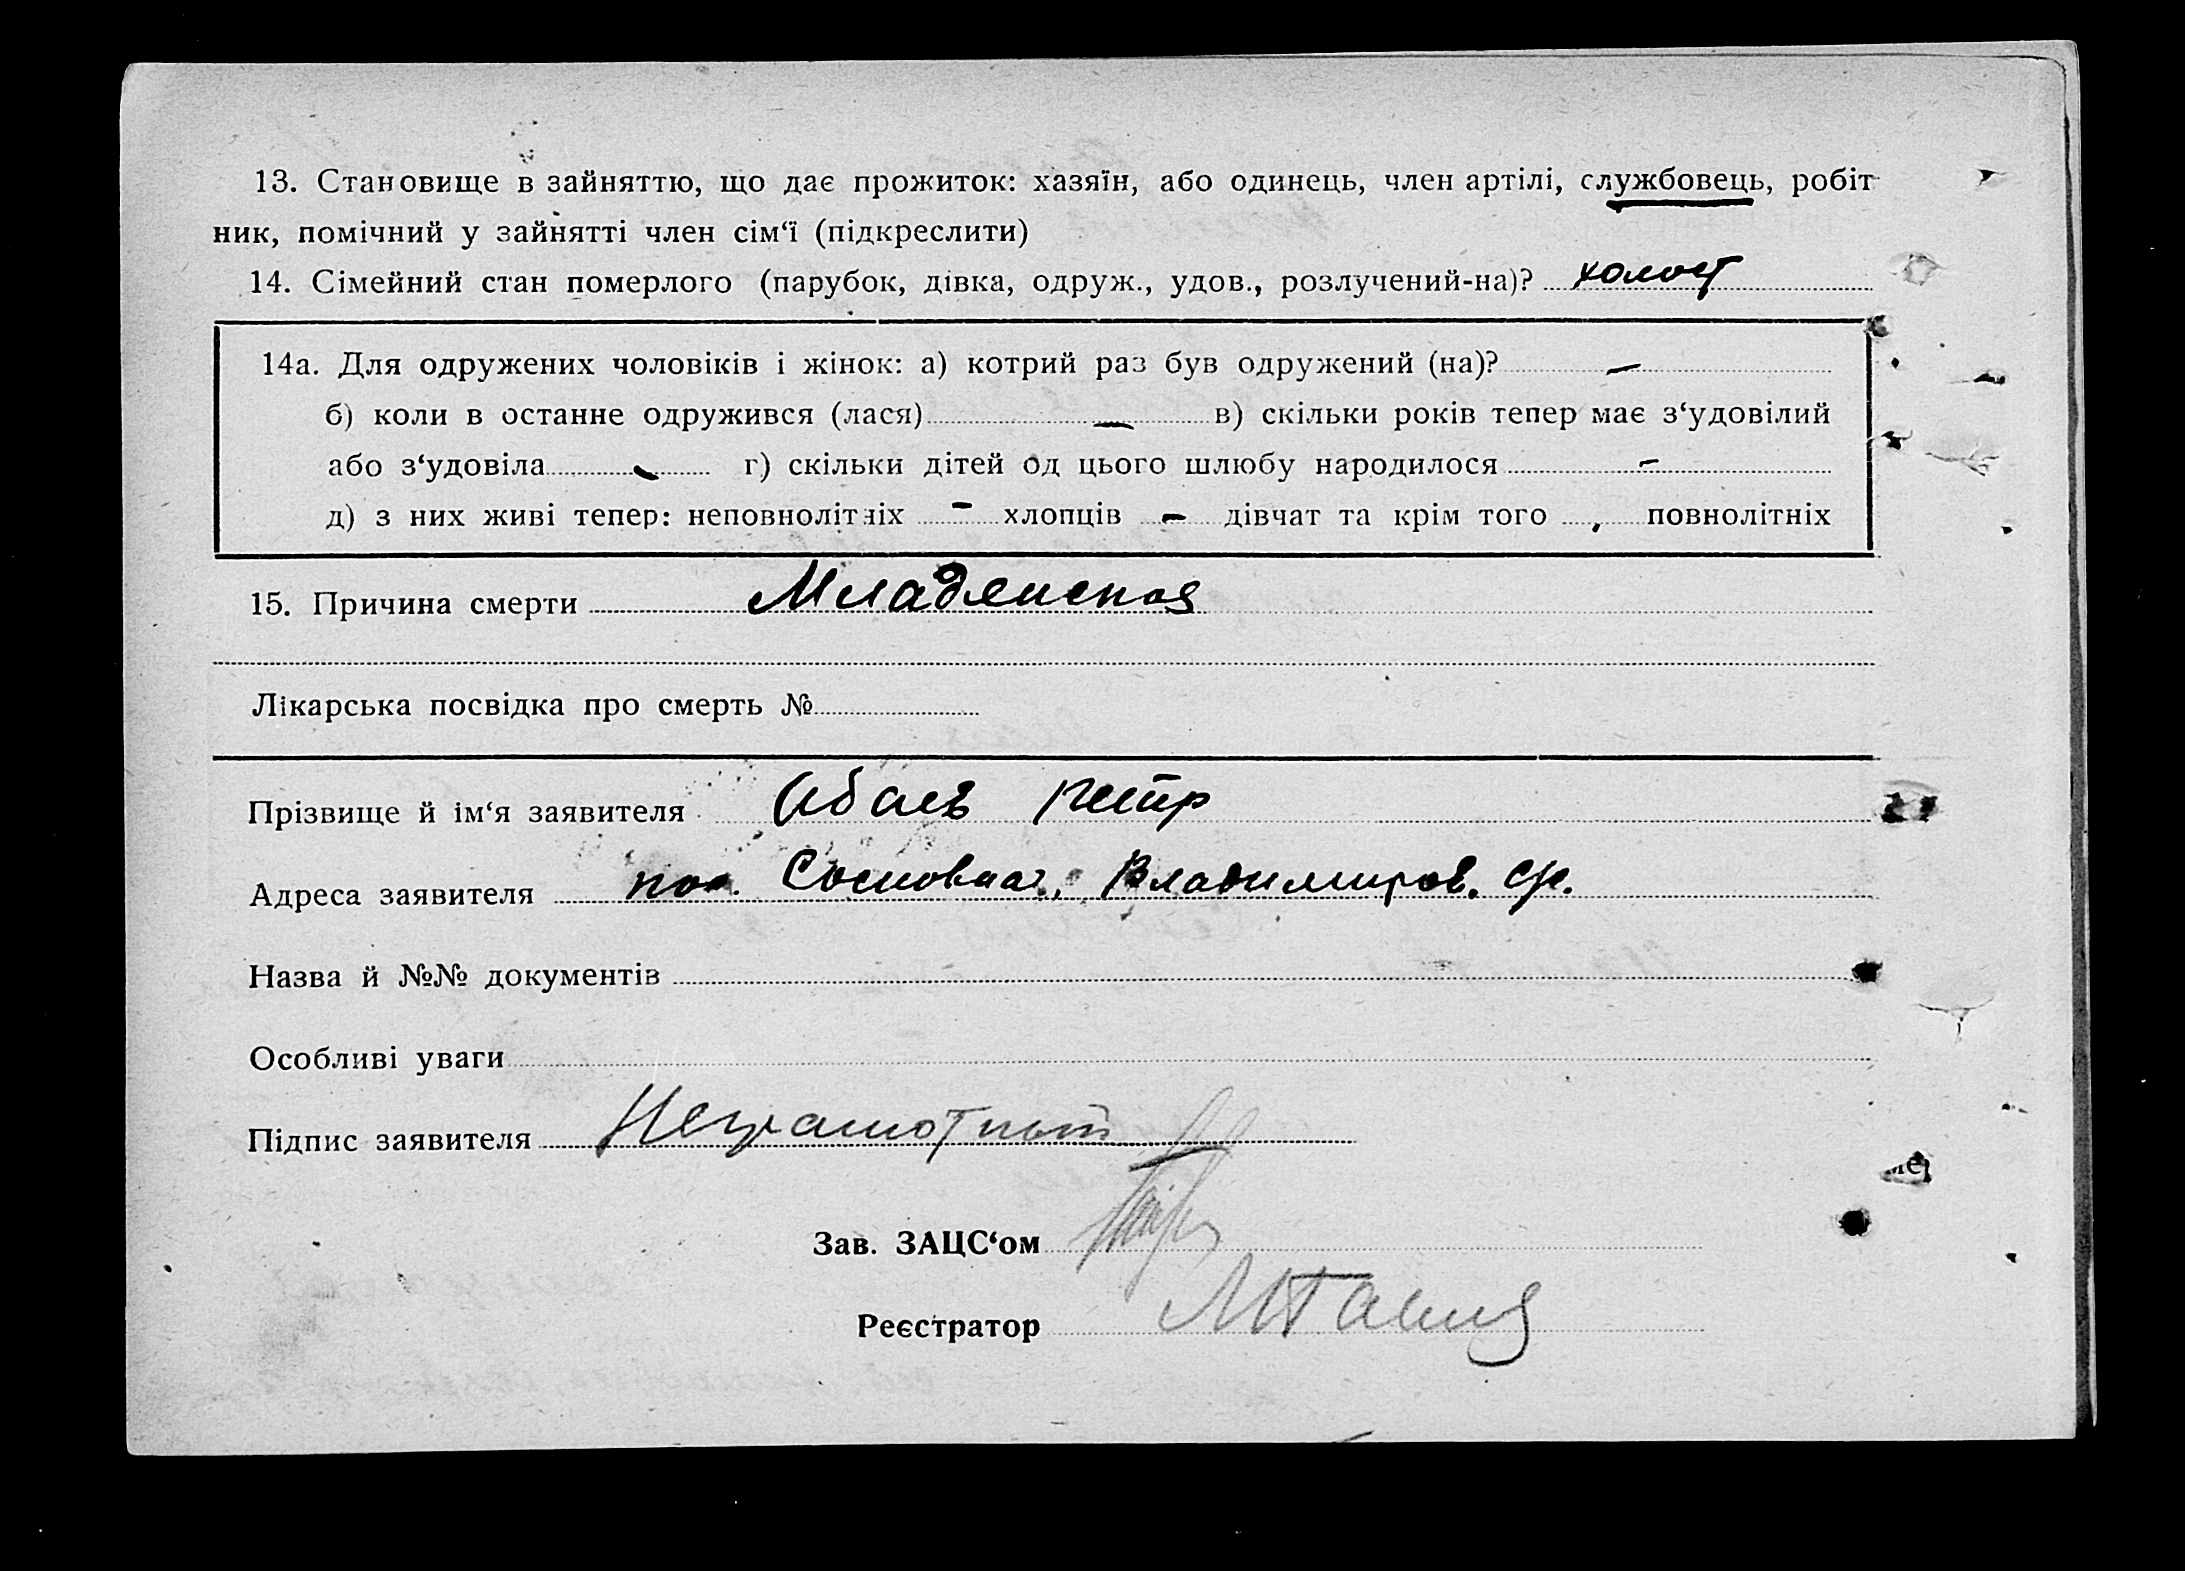 13. Становище в зайняттю, що дає прожиток: хазяїн, або одинець, член артілі, службовець, робіт-
ник, помічний у зайнятті член сім‘ї (підкреслити)
14. Сімейний стан померлого (парубок, дівка, одруж., удов., розлучений-на)? холост
14а. Для одружених чоловіків і жінок: а) котрий раз був одружений (на)? —
б) коли в останне одружився (лася) — в) скільки років тепер має з‘удовілий
або з‘удовіла — г) скільки дітей од цього шлюбу народилося —
д) з них живі тепер: неповнолітніх — хлопців — дівчат та крім того , повнолітніх
15. Причина смерти Младенская
Лікарська посвідка про смерть №
Прізвище й ім‘я заявителя Абаев Петр
Адреса заявителя пос. Сосновка, Владимиров. с/с.
Назва й №№ документів
Особливі уваги
Підпис заявителя Неграмотный
Зав. ЗАЦС‘ом
Реєстратор